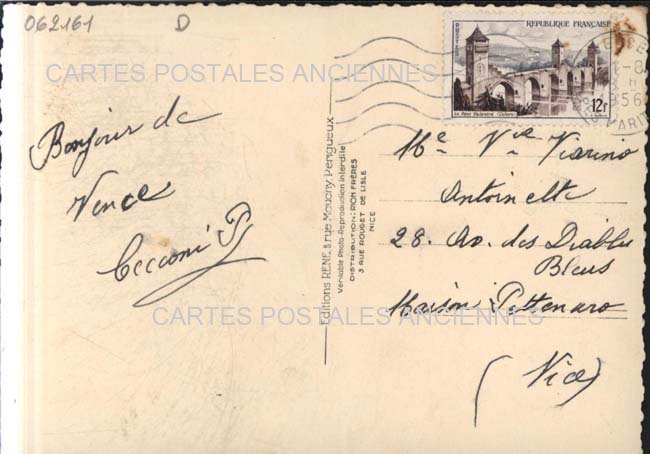 062161 D
CARTES POSTALES ANCIENNES
REPUBLIQUE FRANÇAISE
POSTES
Le Pont Valentré (Cahors)
12F
Bonjour de
Vence
Cecconi P
Editions RENE, 3, rue Mouchy, Périgueux
Véritable Photo-Reproduction interdite
DISTRIBUTION: RION FRÈRES
3 RUE ROUGET DE LISLE
NICE
Me Vve Viarino
Antoinette
28. Av. des Diables
Bleus
Maison Pettenaro
CARTES POSTALES ANCIENNES
(Nice)